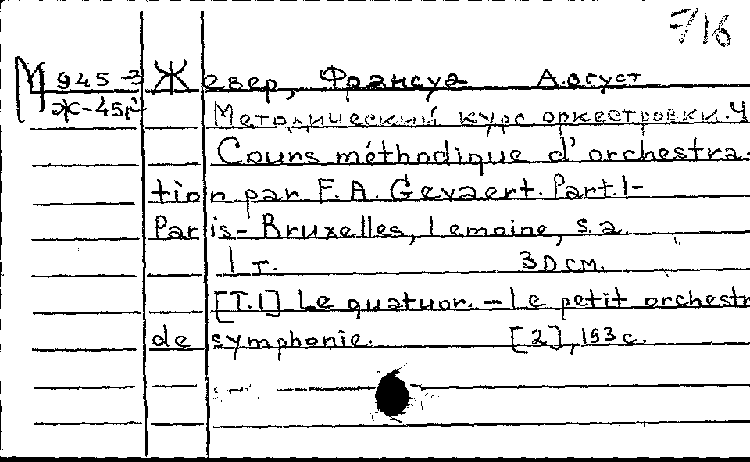 7/16
М 945-3 Жевер, Франсуа Август
Ж-45
Методический курс оркестровки. Ч
Cours méthodique d'orchestra-
tion par F. A. Gevaert. Part. 1-
Paris-Bruxelles, Lemoine, s. a.
1 т. 30 см.
[T. 1] Le quatuor. - Le petit orchestr
de symphonie. [2], 193 с.